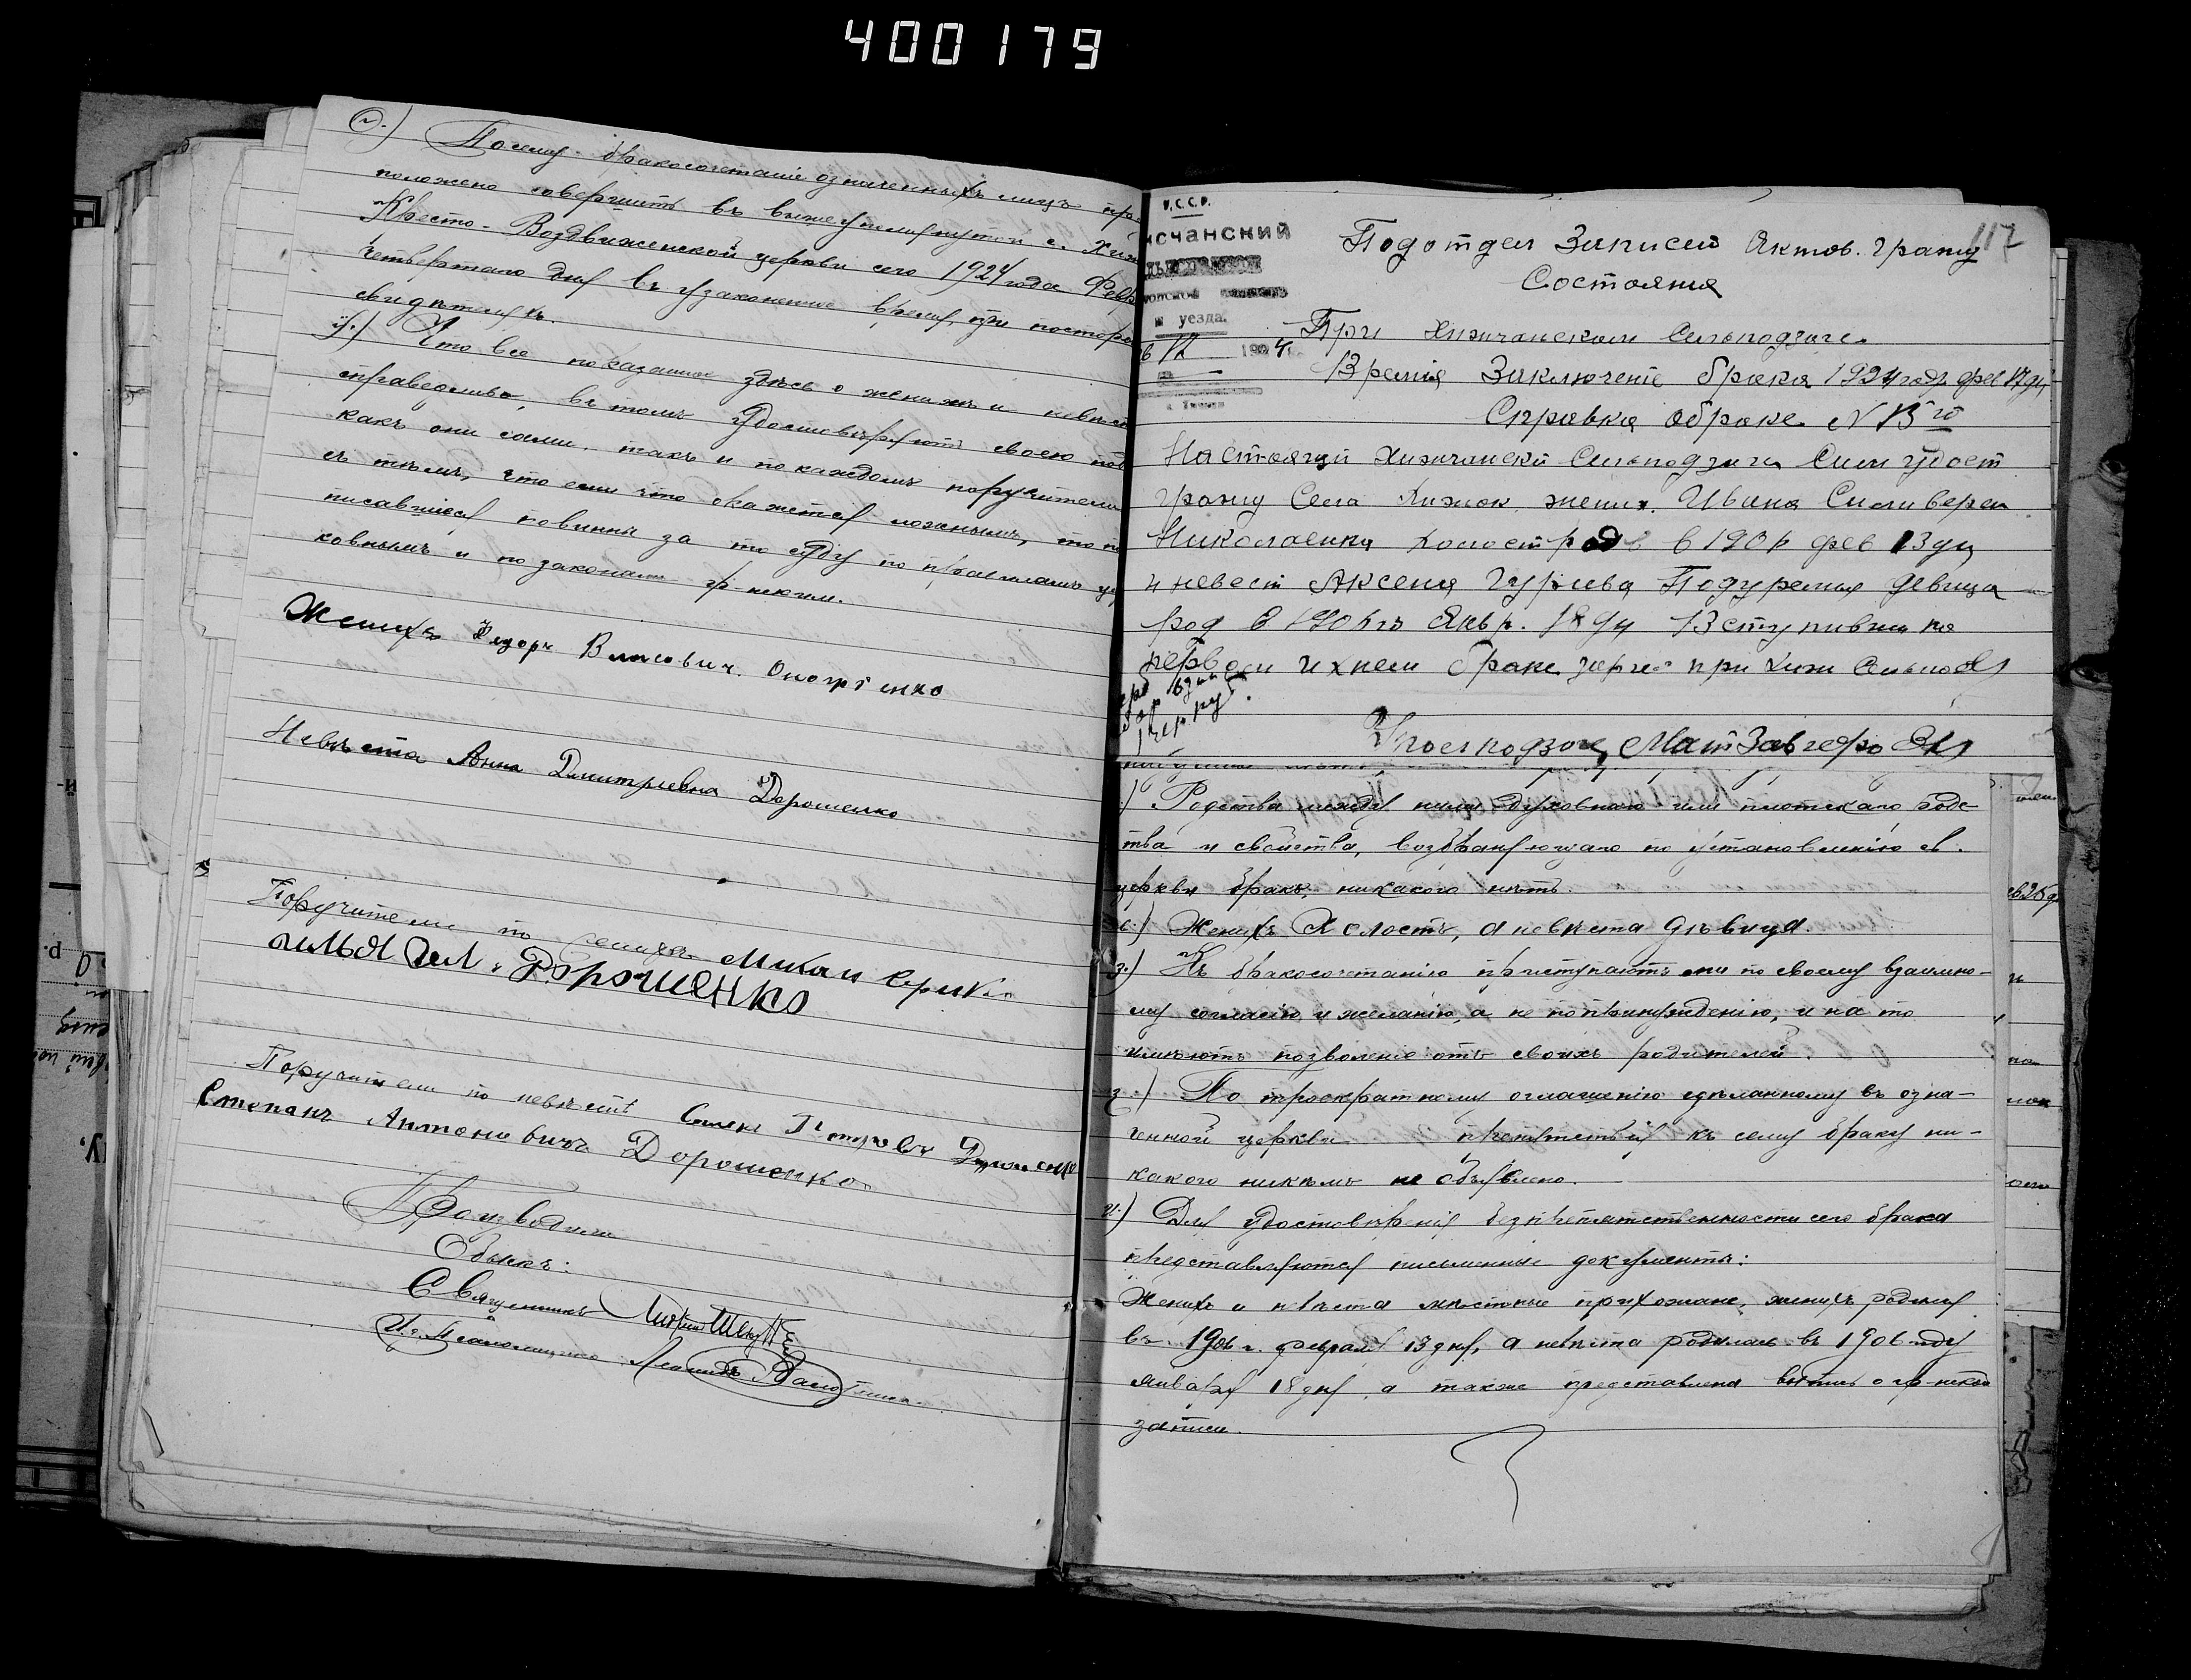 400179
Посему бракосочетаніе означенныхъ лицъ пре
положено совершить въ вышеупомянутой с. Хиж
Кресто-Воздвиженской церкви сего 1924 года Фев
четвертаго дня въ узаконенное время, при посторо
свидѣтеляхъ.
Что все показанное здѣсь о женихѣ и невѣстѣ
справедливо, въ томъ удостовѣряютъ своею под
какъ они сами, такъ и по каждомъ поручители
съ тѣмъ, что если что окажется ложнымъ, то по
писавшіеся повинны за то суду по правиламъ цер
ковнымъ и по законамъ гр-нскимъ.
Женихъ Федоръ Власовичъ
Невѣста Анна Димитріевна Дорошенко
Поручители по женихѣ Михаил
Илья Дорошенко
Поручители по невѣстѣ Петровъ
Степанъ Антоновичъ Дорошенко
Производили
Обыскъ:
Священникъ
И. о. Псаломщика Леонидъ
117
У.С.С.Р.
нсчанский
уезда.
12 1924
Подотдел Записей Актов. Гражд
Состояния
При Хижчанском Сельподзаге
Время Заключеніе брака 1924 года фев 17 дн
Справка обраке N 13го
Настоящи Хижчански Сельподзаг Сим удост
гражд Села Хижок жених Ивана Силиверс
Николаенка холост род в 190 фев 13 дн
и невест Аксеня Гурьева Подуремая девица
род в 1906 г Янвр. 18 дн Вступивши на
первом ихнем браке при Хиж
) Родства между ними духовнаго или плотскаго родс
тва и свойства, возбраняющаго по установленію св.
церкви бракъ, никакого нѣтъ.
Женихъ холостъ, а невѣста дѣвица.
Къ бракосочетанію приступаютъ они по своему взаимно-
му согласію и желанію, а не по принужденію, и на то
имѣютъ позволеніе отъ своихъ родителей.
По троекратному оглашенію сдѣланному въ озна-
ченной церкви препятствія къ сему браку ни-
какого никѣмъ не объявлено.
Для удостовѣренія безпрепятственности сего брака
представляются письменные документы:
Женихъ и невѣста мѣстные прихожане, женихъ родился
въ 1906 г. февраля 13 дня, а невѣста родилась въ 1906 году
января 18 дня, а также представлена выпись о гр-нской
записи.